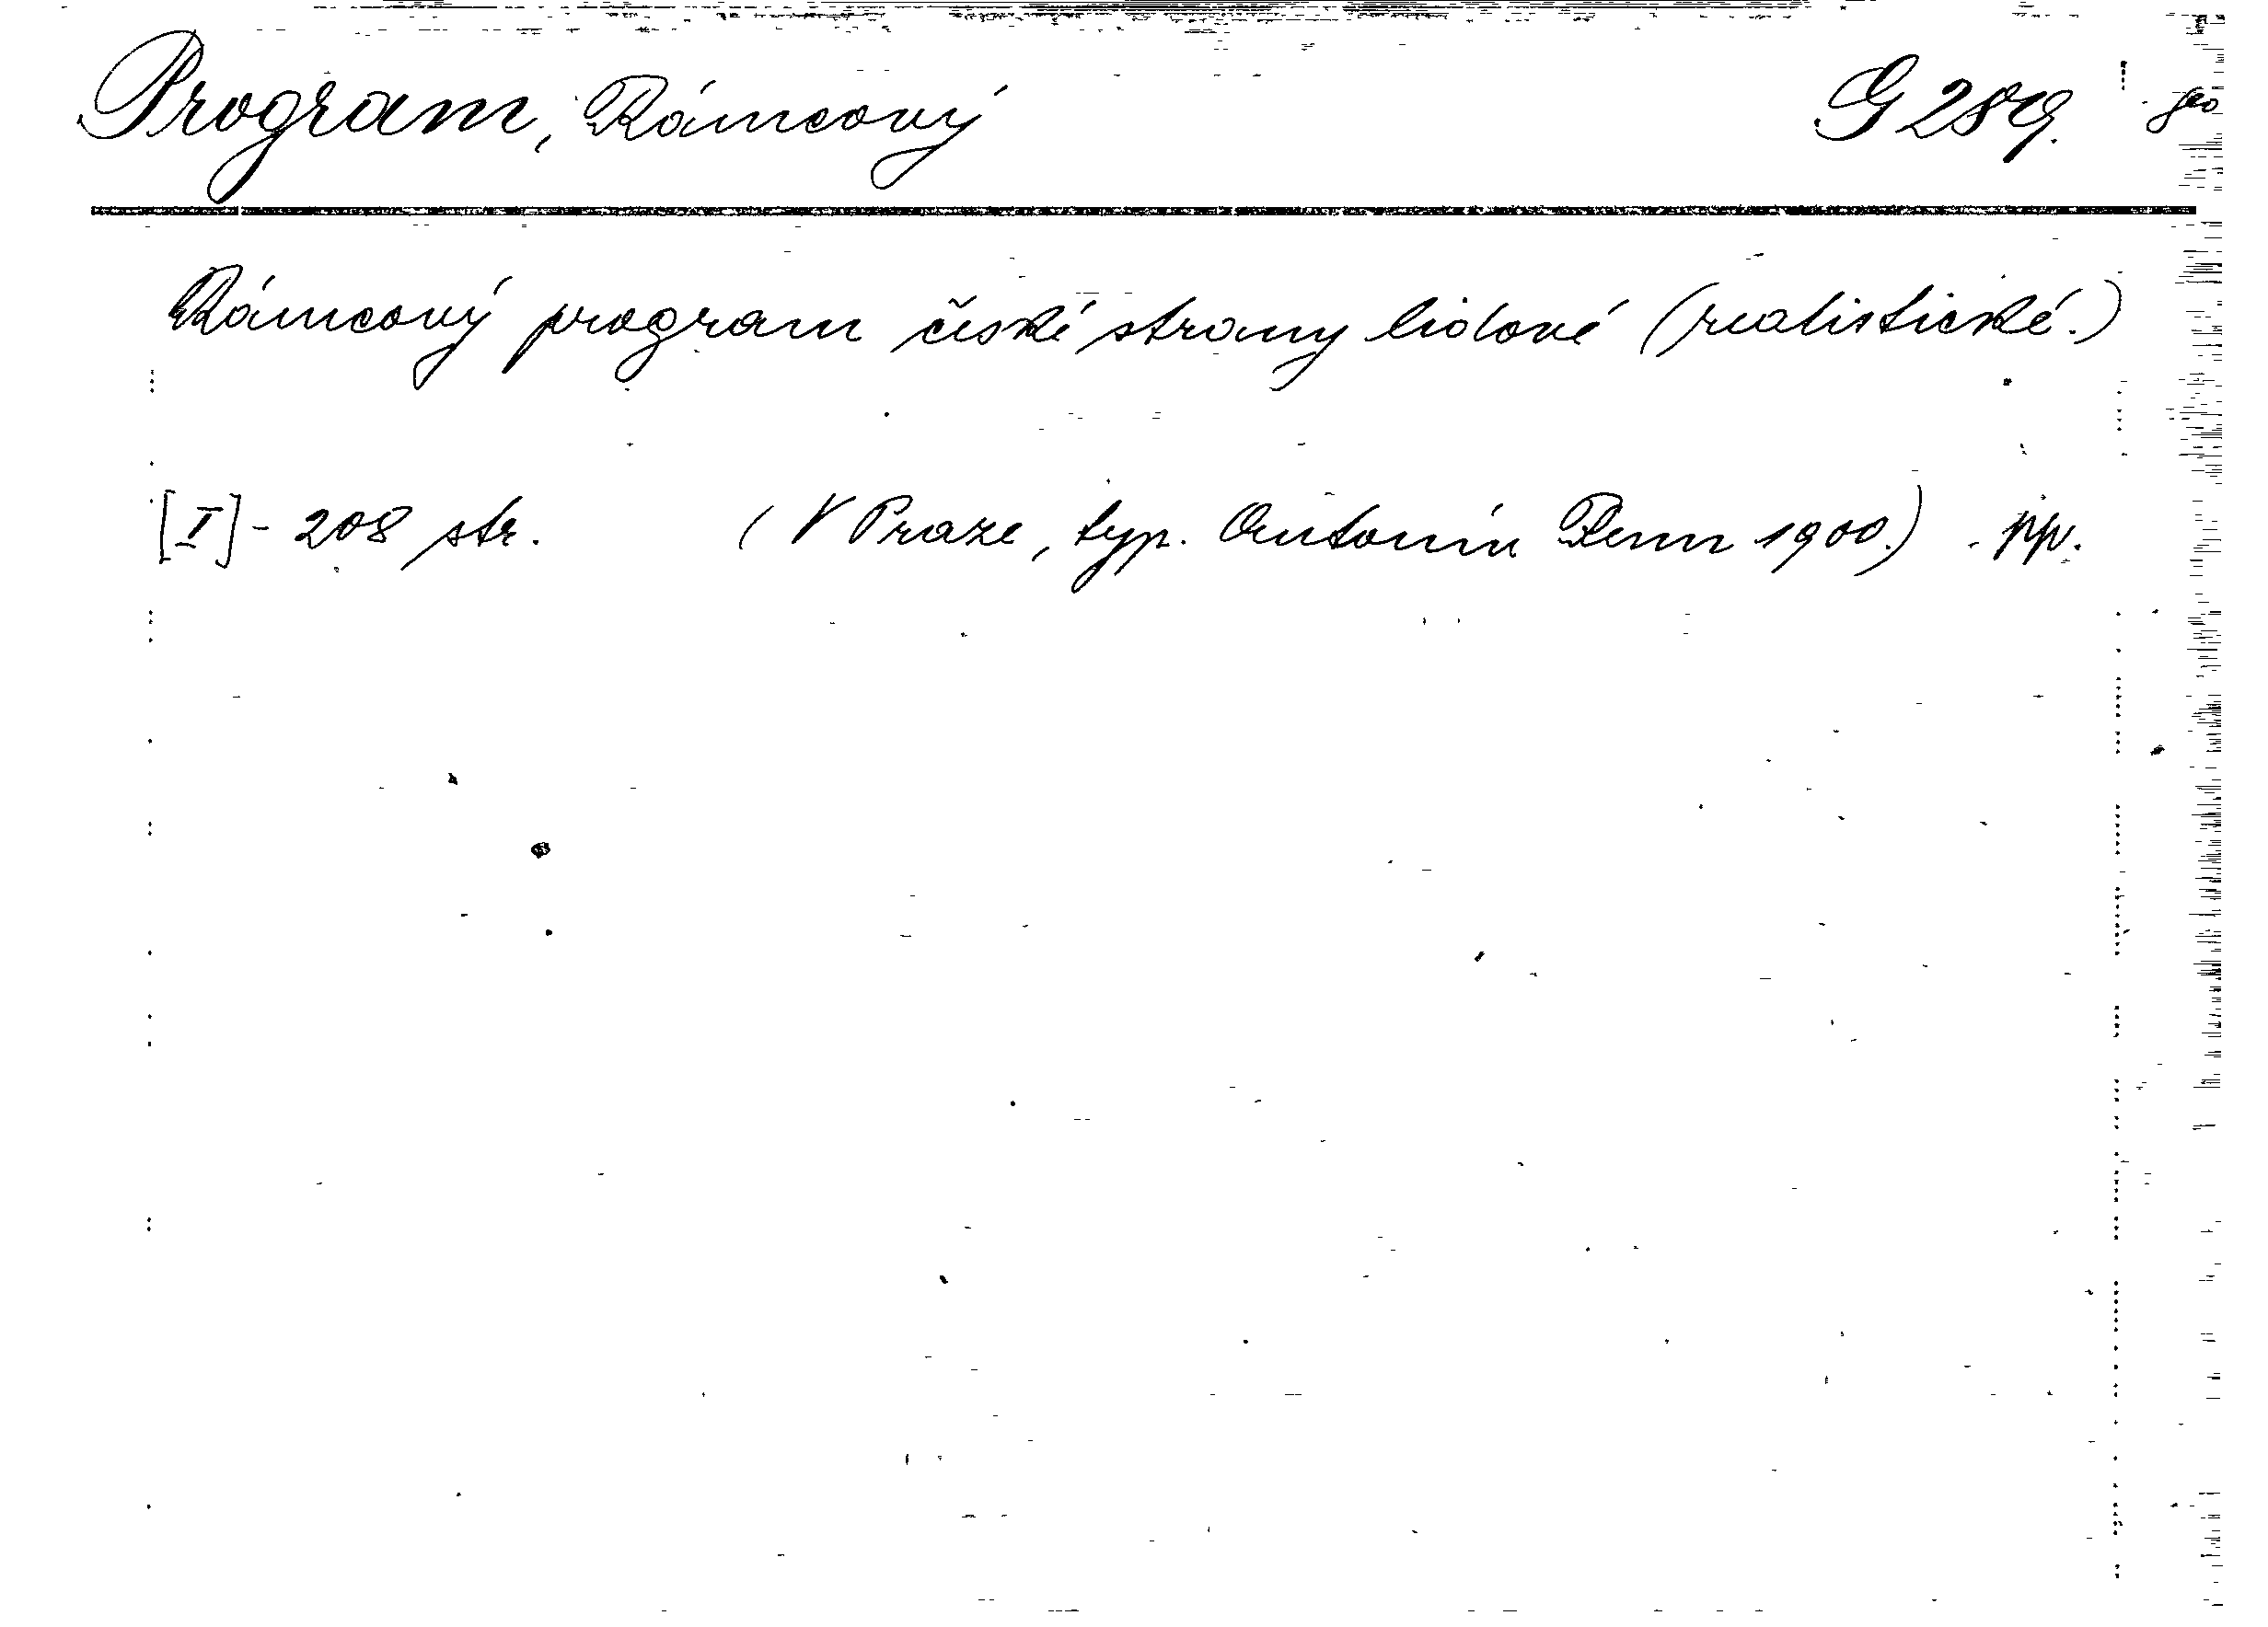 Program, Rámcový G 289.
Rámcový program české strany lidové (realistické.)
[I] - 208 str. (V Praze, typ. Antonín Renn 1900.) . pp.